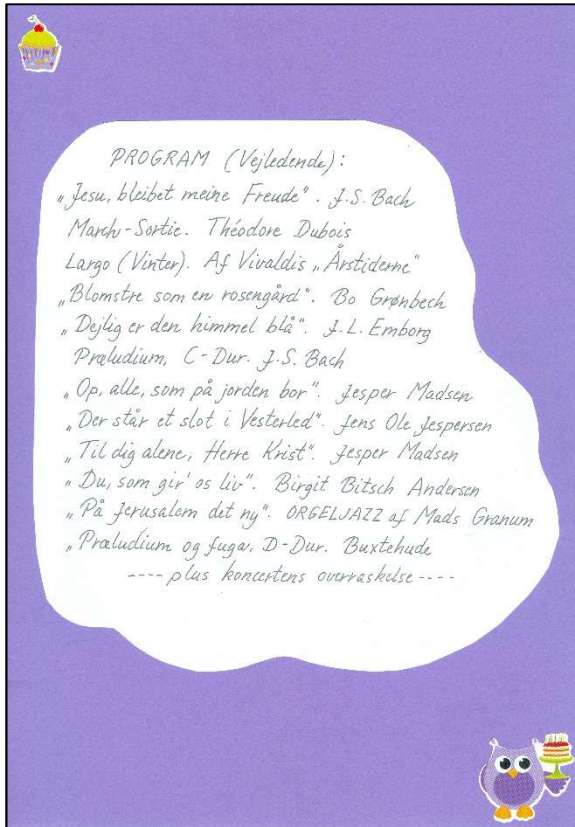 PROGRAM (Vejledende):
„Jesu, bleibet meine Freude“. J.S. Bach
March-Sortie. Théodore Dubois
Largo (Vinter). Af Vivaldis „Årstiderne“
„Blomstre som en rosengård“. Bo Grønbech
„Dejlig er den himmel blå“. J.L. Emborg
Præludium, C-Dur. J.S. Bach
„Op, alle, som på jorden bor“. Jesper Madsen
„Der står et slot i Vesterled“. Jens Ole Jespersen
„Til dig alene, Herre Krist“. Jesper Madsen
„Du, som gir' os liv“. Birgit Bitsch Andersen
„På Jerusalem det ny“. ORGELJAZZ af Mads Granum
„Præludium og fuga, D-Dur. Buxtehude
---- plus koncertens overraskelse ----